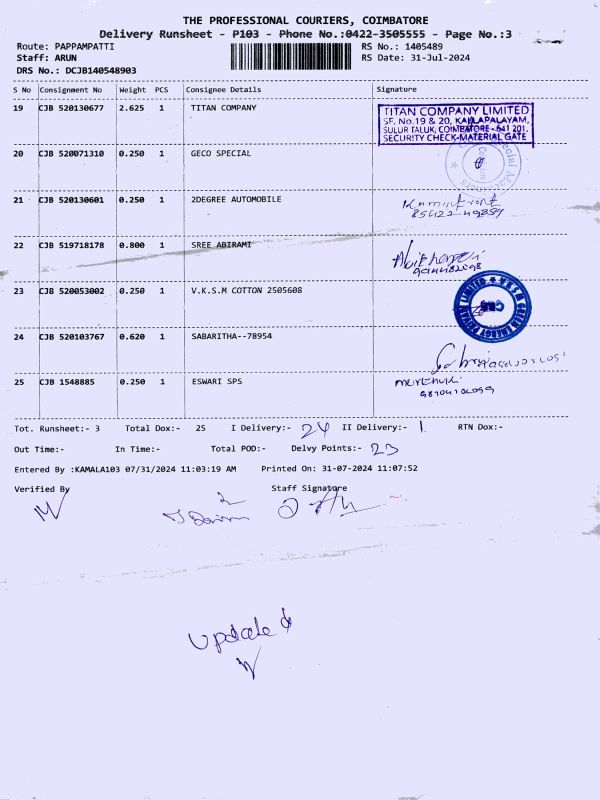 THE PROFESSIONAL COURIERS, COIMBATORE
Delivery Runsheet - P103 - Phone No.:0422-3505555 - Page No.:3
Route: PAPPAMPATTI RS No.: 1405489
Staff: ARUN RS Date: 31-Jul-2024
DRS No.: DCJB140548903
S No Consignment No Weight PCS Consignee Details Signature
19 CJB 520130677 2.625 1 TITAN COMPANY
TITAN COMPANY LIMITED
SF. No.19 & 20, KALLAPALAYAM,
SULUR TALUK, COIMBATORE - 641 201.
SECURITY CHECK-MATERIAL GATE
20 CJB 520071310 0.250 1 GECO SPECIAL
21 CJB 520130601 0.250 1 2DEGREE AUTOMOBILE
22 CJB 519718178 0.800 1 SREE ABIRAMI
23 CJB 520053002 0.250 1 V.K.S.M COTTON 2505608
24 CJB 520103767 0.620 1 SABARITHA--78954
25 CJB 1548885 0.250 1 ESWARI SPS
Tot. Runsheet:- 3 Total Dox:- 25 I Delivery:- 24 II Delivery:- 1 RTN Dox:-
Out Time:- In Time:- Total POD:- Delvy Points:- 23
Entered By :KAMALA103 07/31/2024 11:03:19 AM Printed On: 31-07-2024 11:07:52
Verified By Staff Signatore
Updated